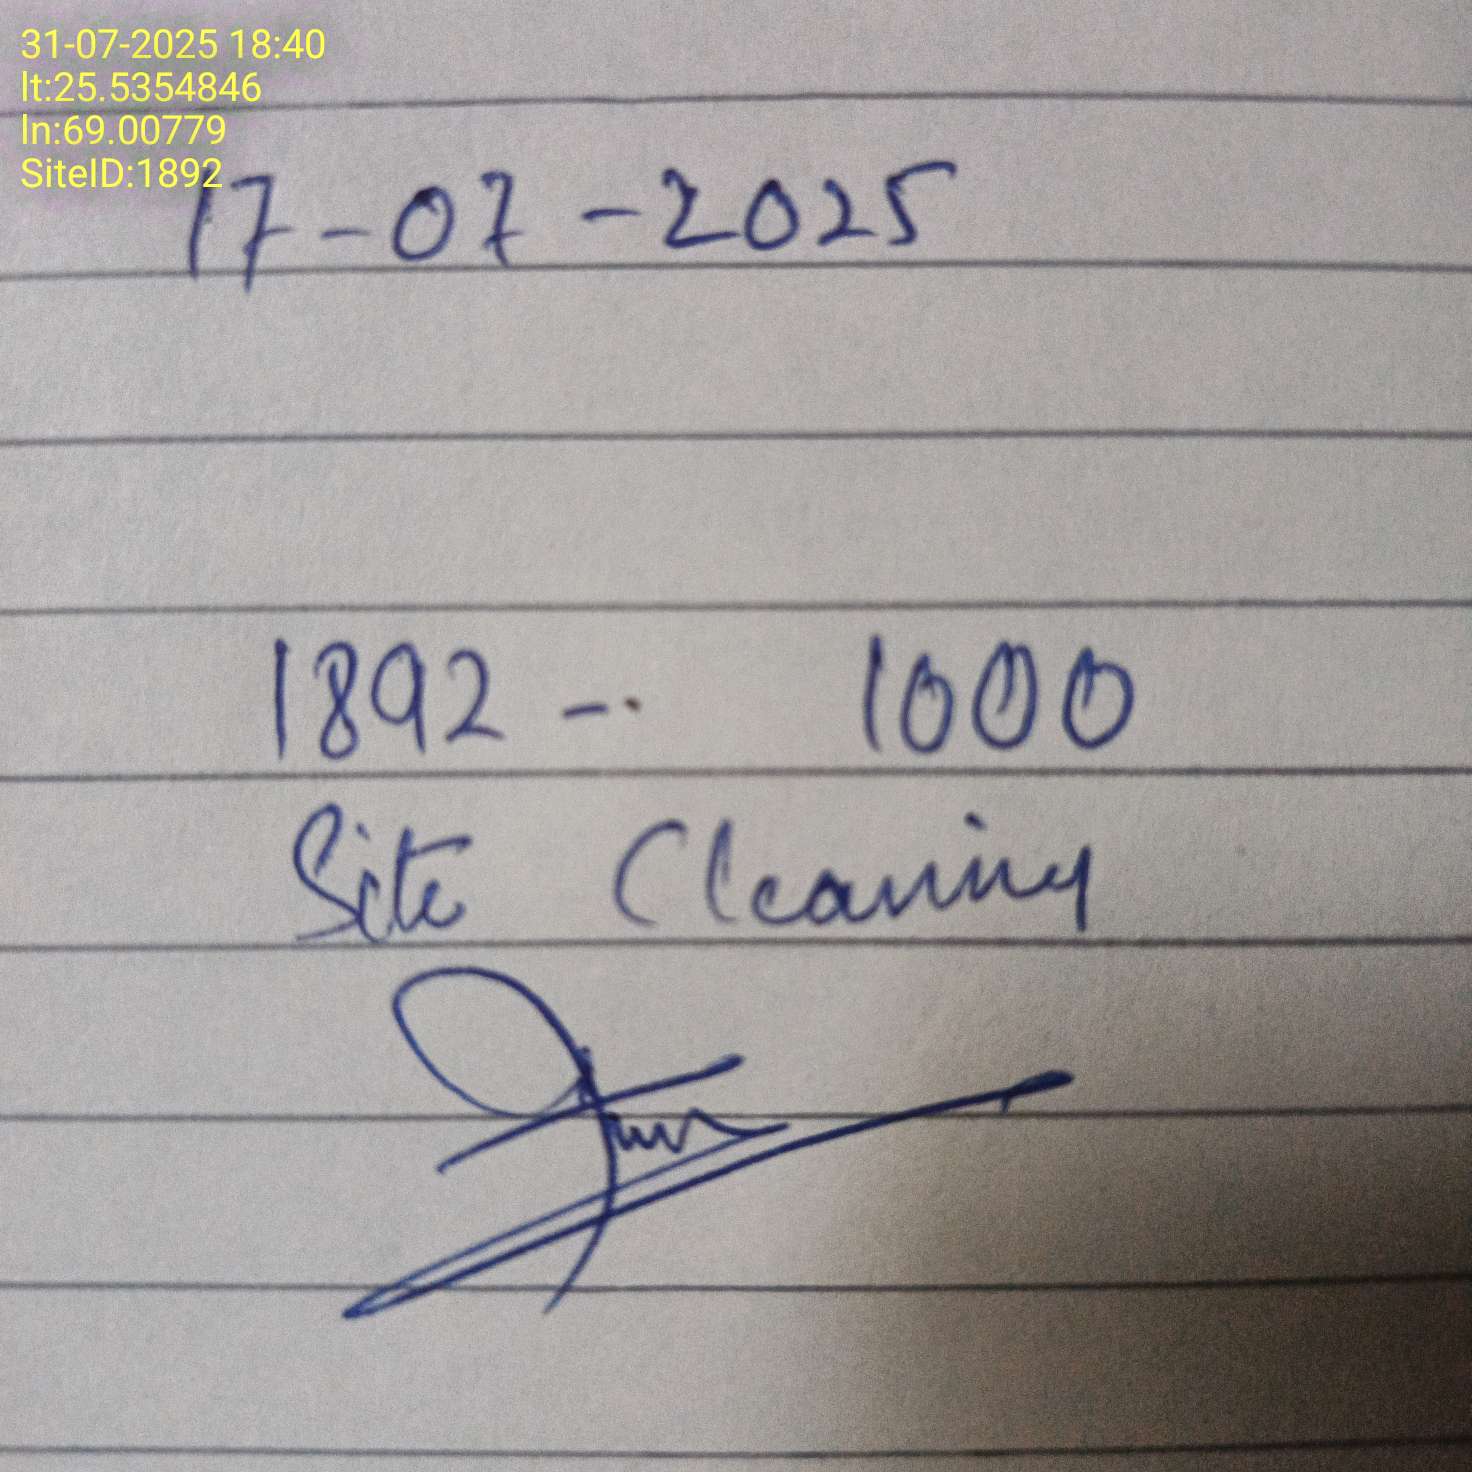 31-07-2025 18:40
lt:25.5354846
ln:69.00779
SiteID:1892
17-07-2025
1892 -- 1000
Site Cleaning